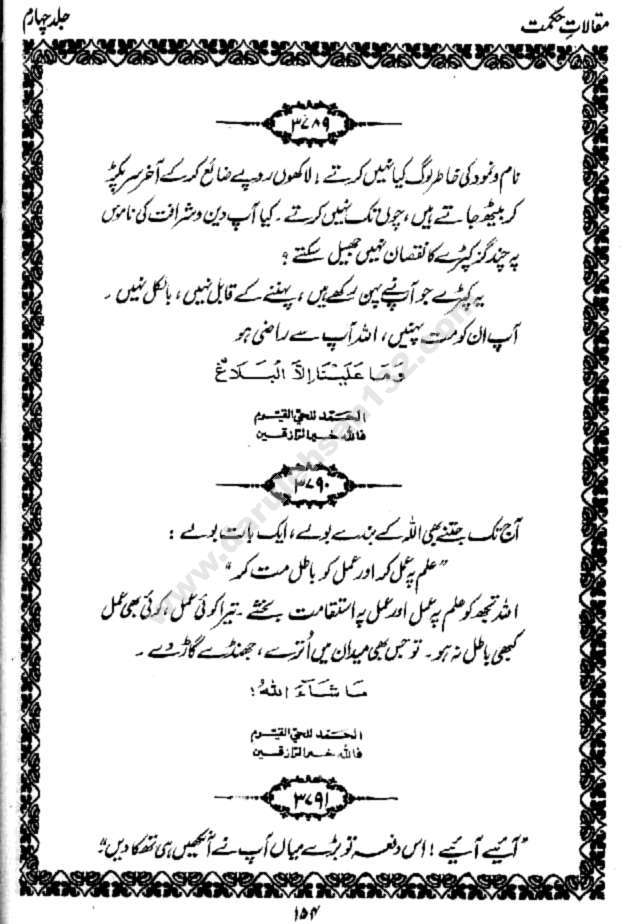 مقالاتِ حکمت
جلد چہارم
۳۷۸۹
نام و نمود کی خاطر لوگ کیا نہیں کرتے! لاکھوں روپے ضائع کر کے آخر سر پکڑ
کر بیٹھ جاتے ہیں، چوں تک نہیں کرتے۔ کیا آپ دین و شرافت کی ناموس
پہ چند گز کپڑے کا نقصان نہیں جھیل سکتے؟
یہ کپڑے جو آپ نے پہن رکھے ہیں، پہننے کے قابل نہیں، بالکل نہیں۔
آپ ان کو مت پہنیں، اللہ آپ سے راضی ہو
وَمَا عَلَيْنَا اِلَّا الْبَلَاغُ
الحمد للحي القيوم
فالله خير الرازقين
۳۷۹۰
آج تک جتنے بھی اللہ کے بندے بولے، ایک بات بولے:
”علم پہ عمل کر اور عمل کو باطل مت کر“
اللہ تجھ کو علم پہ عمل اور عمل پہ استقامت بخشے۔ تیرا کوئی عمل، کوئی بھی عمل
کبھی باطل نہ ہو۔ تو جس بھی میدان میں اُترے، جھنڈے گاڑ دے۔
مَا شَاءَ اللهُ!
الحمد للحي القيوم
فالله خير الرازقين
۳۷۹۱
”آئیے آئیے! اس دفعہ تو بڑے میاں آپ نے آنکھیں ہی تھکا دیں“
۱۵۴
www.darulehsan132.com